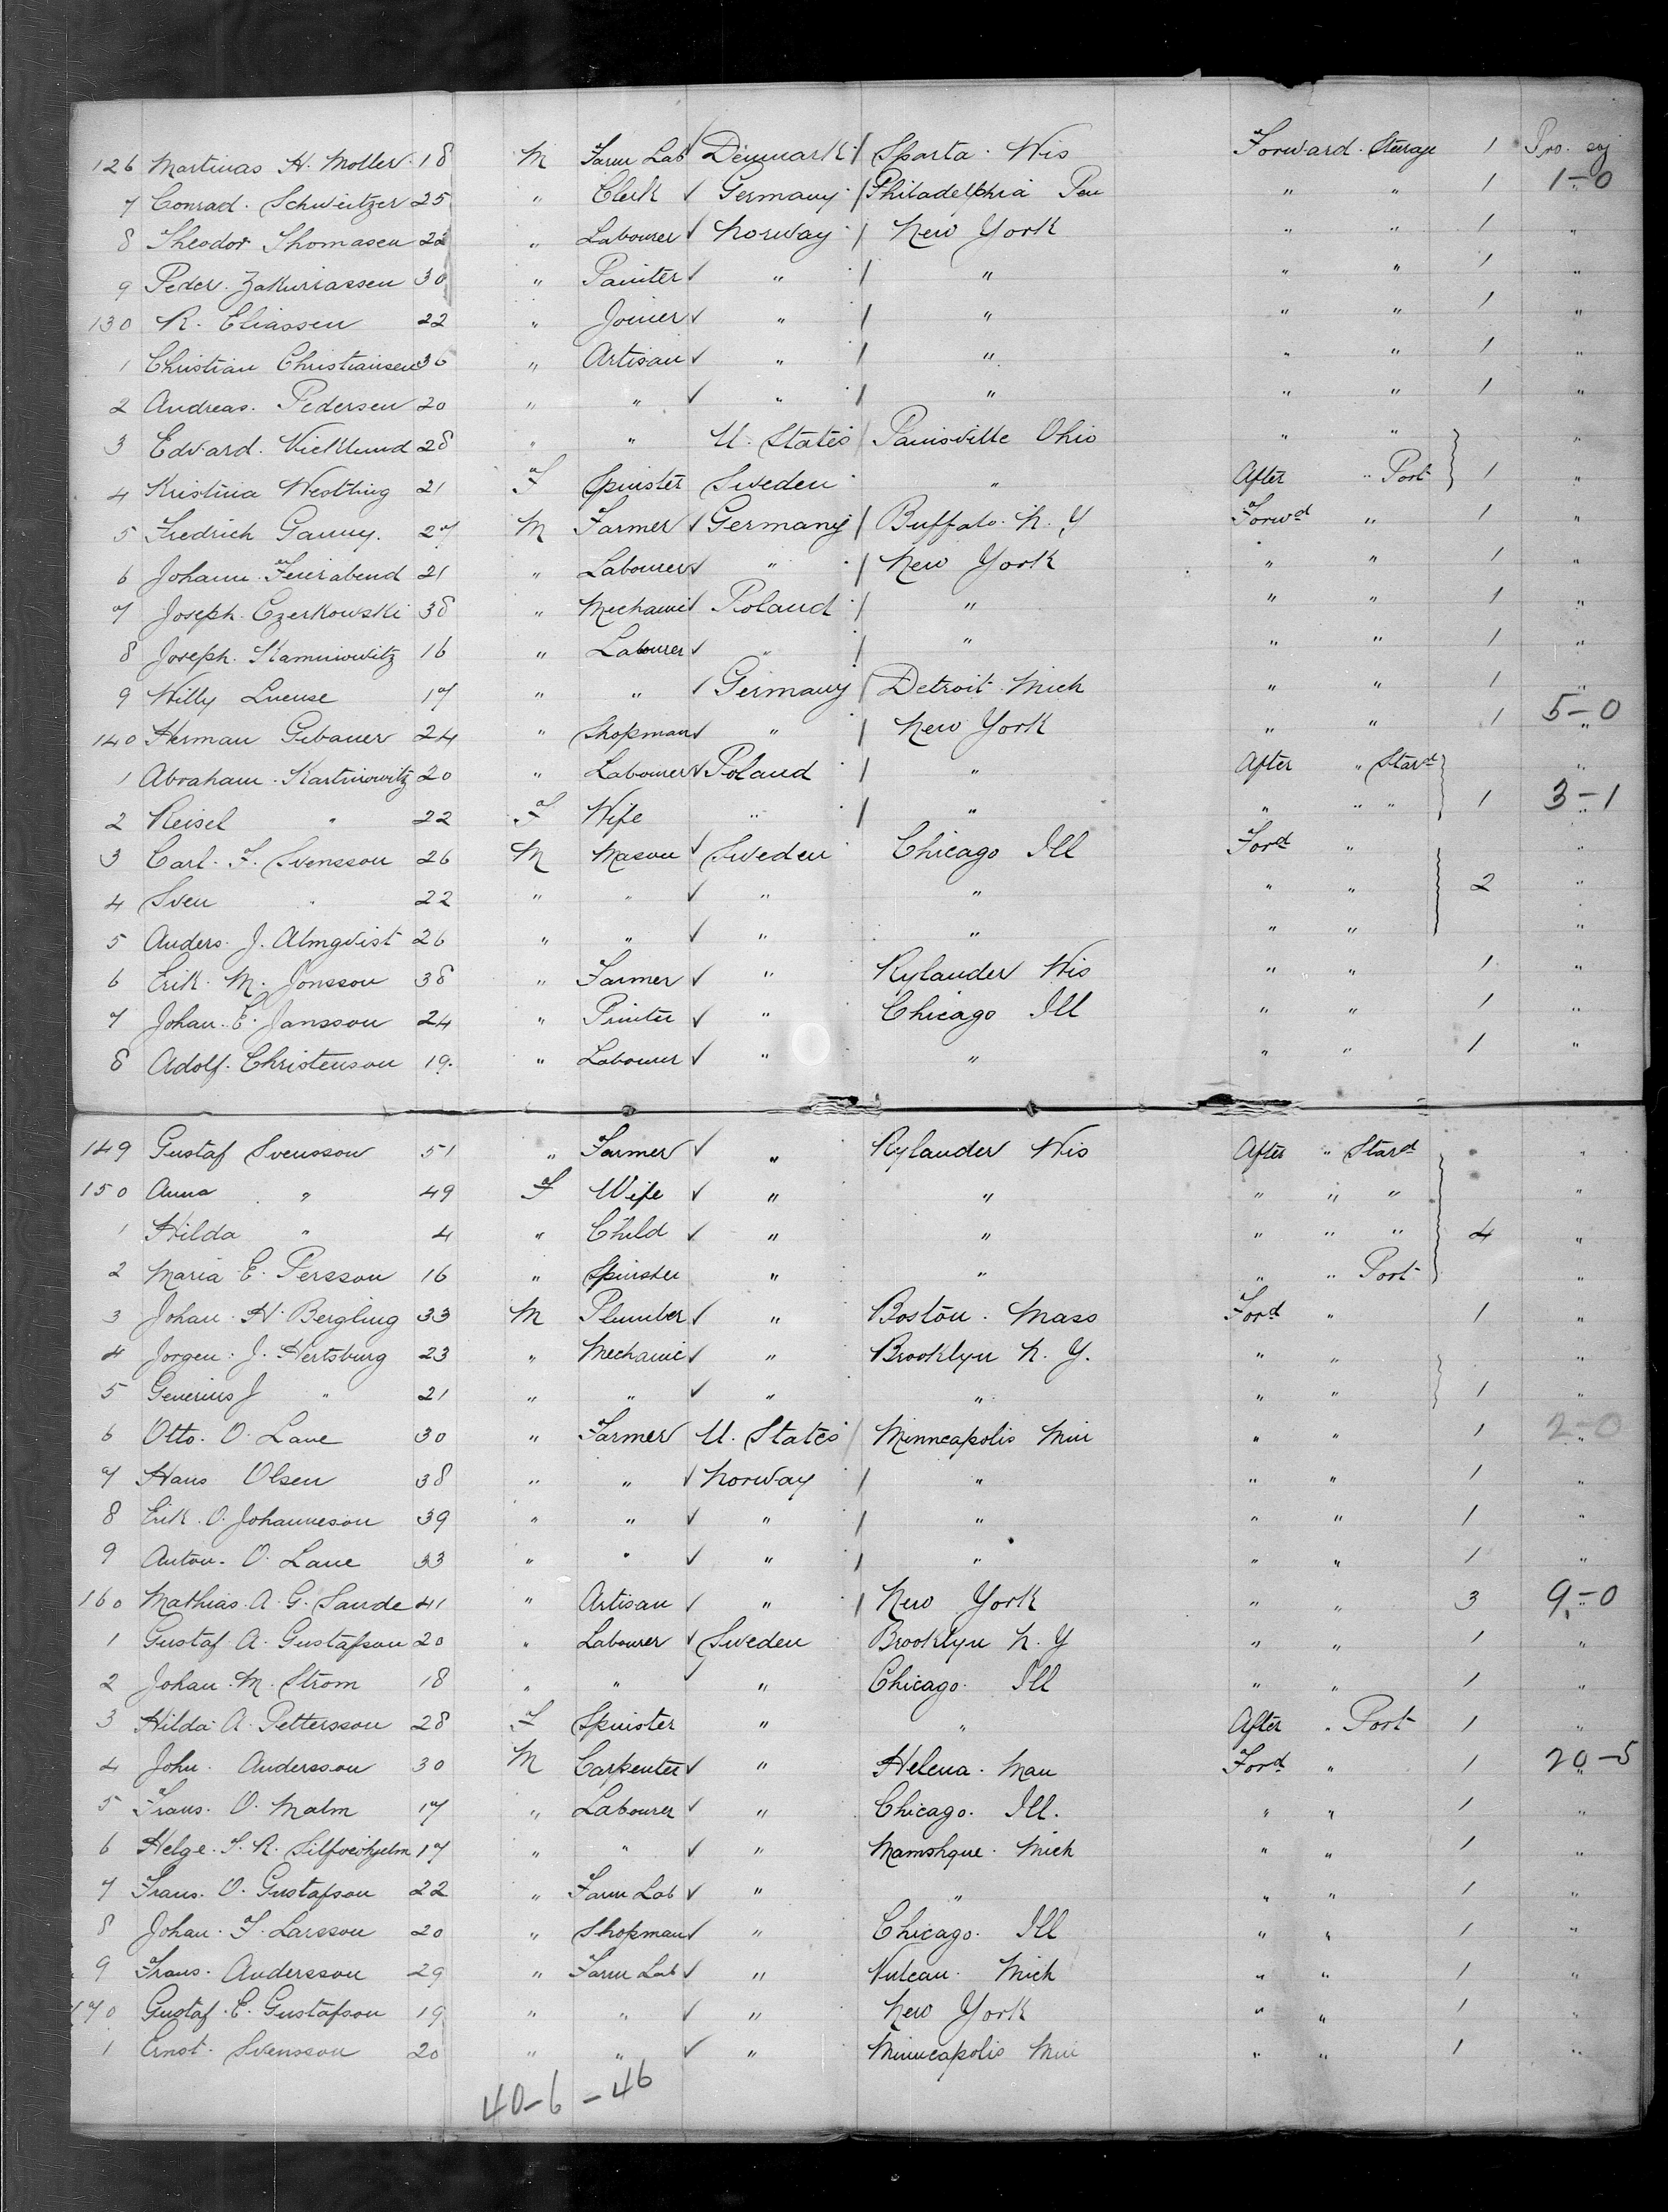 126 Martinas H. Moller 18 M Farm Lab Denmark Sparta Wis Forward Steerage 1 Pro. soj
7 Conrad Schweitzer 25 " Clerk ✓ Germany Philadelphia Pen " " 1 1-0
8 Theodor Thomasen 22 " Labourer ✓ Norway New York " " 1 "
9 Peder Zakariassen 30 " Painter ✓ " " " " 1 "
130 R. Eliassen 22 " Joiner ✓ " " " " 1 "
1 Christian Christiansen 36 " Artisan ✓ " " " " 1 "
2 Andreas Pedersen 20 " " ✓ " " " " 1 "
3 Edvard Vicklund 28 " " U. States Painsville Ohio " " "
4 Kristina Westling 21 F Spinster Sweden " After " Port 1 "
5 Fredrich Gauny 27 M Farmer ✓ Germany Buffalo N. Y Forwd " 1 "
6 Johann Feierabend 21 " Labourer ✓ " New York " " 1 "
7 Joseph Czerkowski 38 " Mechanic ✓ Poland " " " 1 "
8 Joseph Kaminowitz 16 " Labourer ✓ " " " 1 "
9 Willy 17 " " ✓ Germany Detroit Mich " " 1 "
140 Herman Gebauer 24 " Shopman ✓ " New York " " 1 5-0
1 Abraham Kartinowitz 20 " Labourer ✓ Poland " After " Stard "
2 Reisel " 22 F Wife " " " " " 1 3-1
3 Carl F. Svensson 26 M Mason ✓ Sweden Chicago Ill Ford " "
4 Sven " 22 " " ✓ " " " " 2 "
5 Anders J. Almqvist 26 " " ✓ " " " " "
6 Erik M. Jonsson 38 " Farmer ✓ " Rylander Wis " " 1 "
7 Johan E. Jansson 24 " Printer ✓ " Chicago Ill " " 1 "
8 Adolf Christenson 19 " Labourer ✓ " " " " 1 "
149 Gustaf Svensson 51 " Farmer ✓ " Rylander Wis After " Stard "
150 Anna " 49 F Wife ✓ " " " " " "
1 Hilda " 4 " Child ✓ " " " " " 4 "
2 Maria E. Persson 16 " Spinster " " " " Port "
3 Johan H. Bergling 33 M Plumber ✓ " Boston Mass Ford " 1 "
4 Jorgen J. Hertsburg 23 " Mechanic ✓ " Brooklyn N. Y. " " "
5 Generius J " 21 " " ✓ " " " " 1 "
6 Otto O. Lane 30 " Farmer U. States Minneapolis Min " " 1 2-0
7 Hans Olsen 38 " " ✓ Norway " " " 1 "
8 Erik O. Johanneson 39 " " ✓ " " " " 1 "
9 Anton O. Lane 33 " " ✓ " " " " 1 "
160 Mathias A. G. Sande 41 " Artisan ✓ " New York " " 3 9-0
1 Gustaf A. Gustafson 20 " Labourer ✓ Sweden Brooklyn N. Y " " 1 "
2 Johan M. Strom 18 " " ✓ " Chicago Ill " " 1 "
3 Hilda A. Pettersson 28 F Spinster " " After " Port 1 "
4 John Andersson 30 M Carpenter ✓ " Helena Man Ford " 1 20-5
5 Frans O. Malm 17 " Labourer ✓ " Chicago Ill. " " 1 "
6 Helge S. R. Silfverhjelm 17 " " ✓ " Mamshque Mich " " 1 "
7 Frans O. Gustafson 22 " Farm Lab ✓ " " " " 1 "
8 Johan F. Larsson 20 " Shopman ✓ " Chicago Ill " " 1 "
9 Frans Andersson 29 " Farm Lab ✓ " Vulcan Mich " " 1 "
170 Gustaf E. Gustafson 19 " " ✓ " New York " " 1 "
1 Ernst Svensson 20 " " ✓ " Minneapolis Min " " 1 "
40-6-46